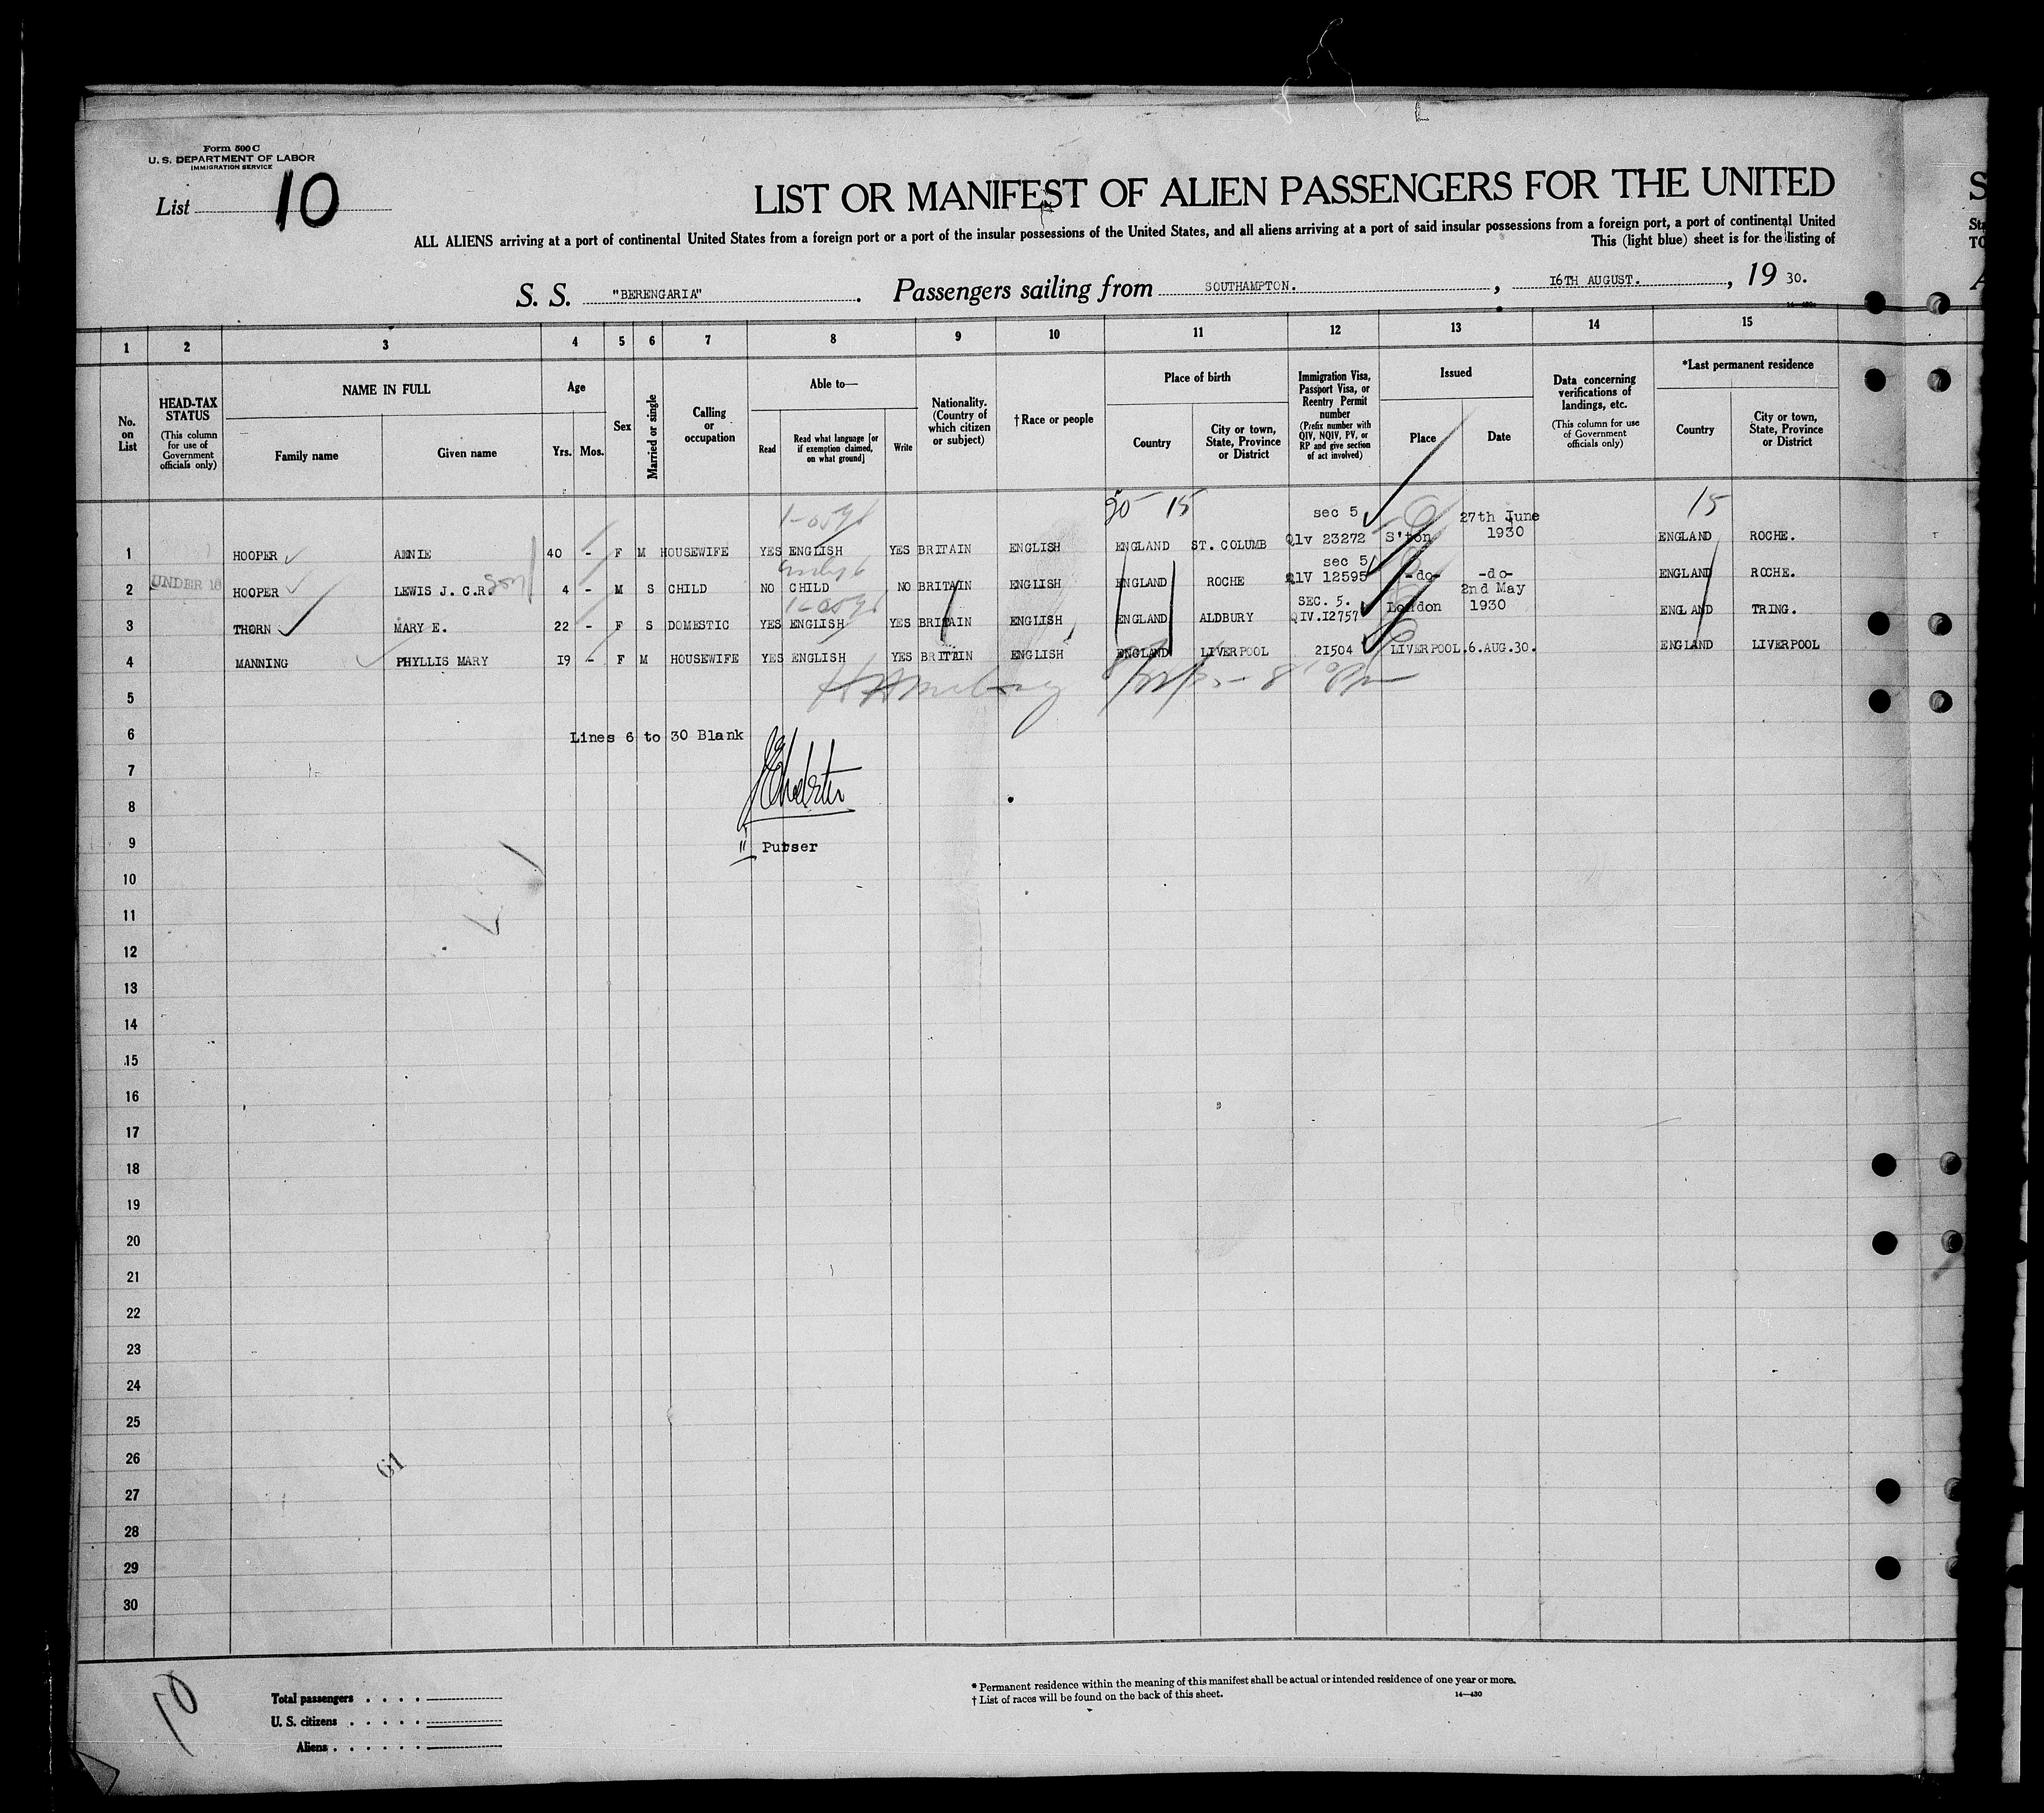 Form 500 C
U. S. DEPARTMENT OF LABOR
IMMIGRATION SERVICE
List 10
LIST OR MANIFEST OF ALIEN PASSENGERS FOR THE UNITED
ALL ALIENS arriving at a port of continental United States from a foreign port or a port of the insular possessions of the United States, and all aliens arriving at a port of said insular possessions from a foreign port, a port of continental United
This (light blue) sheet is for the listing of
S. S. "BERENGARIA". Passengers sailing from SOUTHAMPTON., 16TH AUGUST., 19 30.
1 2 3 4 5 6 7 8 9 10 11 12 13 14 15
No. on List
HEAD-TAX STATUS (This column for use of Government officials only)
NAME IN FULL
Family name
Given name
Age
Yrs. Mos.
Sex
Married or single
Calling or occupation
Able to—
Read
Read what language [or if exemption claimed, on what ground]
Write
Nationality. (Country of which citizen or subject)
†Race or people
Place of birth
Country
City or town, State, Province or District
Immigration Visa, Passport Visa, or Reentry Permit number (Prefix number with QIV, NQIV, PV, or RP and give section of act involved)
Issued
Place
Date
Data concerning verifications of landings, etc. (This column for use of Government officials only)
*Last permanent residence
Country
City or town, State, Province or District
15 sec 5 27th June 15
1 HOOPER ANNIE 40 - F M HOUSEWIFE YES ENGLISH YES BRITAIN ENGLISH ENGLAND ST. COLUMB Q1v 23272 S'ton 1930 ENGLAND ROCHE.
sec 5
UNDER 16
2 HOOPER LEWIS J. C.R. son 4 - M S CHILD NO CHILD NO BRITAIN ENGLISH ENGLAND ROCHE Q1V 12595 -do- -do- ENGLAND ROCHE.
SEC. 5. 2nd May
3 THORN MARY E. 22 - F S DOMESTIC YES ENGLISH YES BRITAIN ENGLISH ENGLAND ALDBURY QIV.12757 London 1930 ENGLAND TRING.
4 MANNING PHYLLIS MARY 19 - F M HOUSEWIFE YES ENGLISH YES BRITAIN ENGLISH ENGLAND LIVERPOOL 21504 LIVERPOOL.6.AUG.30. ENGLAND LIVERPOOL
5
6 Lines 6 to 30 Blank
7
8
9 Purser
10
11
12
13
14
15
16
17
18
19
20
21
22
23
24
25
26
61
27
28
29
30
10
Total passengers
U. S. citizens
Aliens
* Permanent residence within the meaning of this manifest shall be actual or intended residence of one year or more.
† List of races will be found on the back of this sheet.
14—430